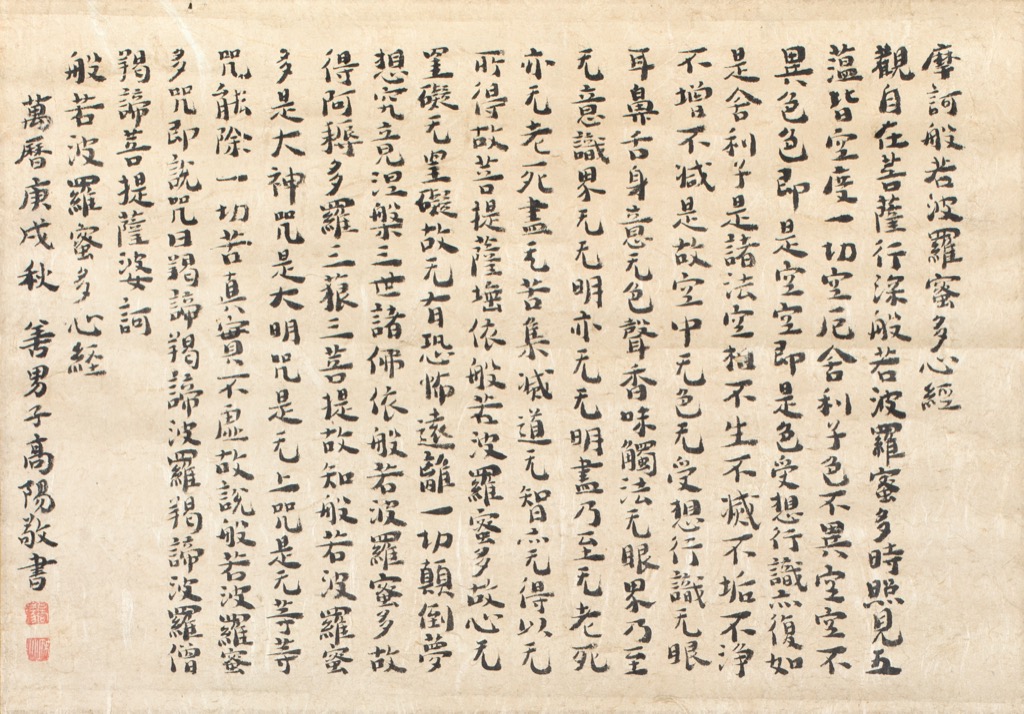 摩訶般若波羅蜜多心經
觀自在菩薩行深般若波羅蜜多時照見五
薀皆空度一切空厄舍利子色不異空空不
異色色即是空空即是色受想行識亦復如
是舍利子是諸法空相不生不滅不垢不淨
不增不减是故空中无色无受想行識无眼
耳鼻舌身意无色聲香味觸法无眼界乃至
无意識界无无明亦无无明盡乃至无老死
亦无老死盡无苦集滅道无智亦无得以无
所得故菩提薩埵依般若波羅蜜多故心无
罣礙无罣礙故无有恐怖遠離一切顛倒夢
想究竟涅槃三世諸佛依般若波羅蜜多故
得阿耨多羅三藐三菩提故知般若波羅蜜
多是大神咒是大明咒是无上咒是无等等
咒能除一切苦真實不虛故說般若波羅蜜
多咒即說咒曰羯諦羯諦波羅羯諦波羅僧
羯諦菩提薩婆訶
般若波羅蜜多心経
萬曆庚戌秋 善男子高陽敬書